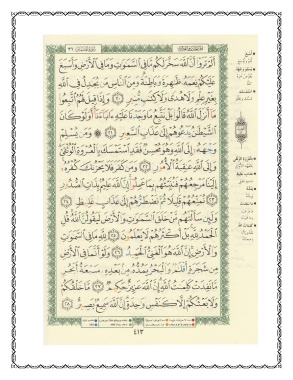 أَلَمْ تَرَوْا أَنَّ اللَّهَ سَخَّرَ لَكُم مَّا فِي السَّمَٰوَٰتِ وَمَا فِي الْأَرْضِ وَأَسْبَغَ
عَلَيْكُمْ نِعَمَهُ ظَٰهِرَةً وَبَاطِنَةً وَمِنَ النَّاسِ مَن يُجَٰدِلُ فِي اللَّهِ
بِغَيْرِ عِلْمٍ وَلَا هُدًى وَلَا كِتَٰبٍ مُّنِيرٍ ٢٠ وَإِذَا قِيلَ لَهُمُ اتَّبِعُوا
مَا أَنزَلَ اللَّهُ قَالُوا بَلْ نَتَّبِعُ مَا وَجَدْنَا عَلَيْهِ ءَابَاءَنَا أَوَلَوْ كَانَ
الشَّيْطَٰنُ يَدْعُوهُمْ إِلَىٰ عَذَابِ السَّعِيرِ ٢١ وَمَن يُسْلِمْ
وَجْهَهُ إِلَى اللَّهِ وَهُوَ مُحْسِنٌ فَقَدِ اسْتَمْسَكَ بِالْعُرْوَةِ الْوُثْقَىٰ
وَإِلَى اللَّهِ عَٰقِبَةُ الْأُمُورِ ٢٢ وَمَن كَفَرَ فَلَا يَحْزُنكَ كُفْرُهُ
إِلَيْنَا مَرْجِعُهُمْ فَنُنَبِّئُهُم بِمَا عَمِلُوا إِنَّ اللَّهَ عَلِيمٌ بِذَاتِ الصُّدُورِ
٢٣ نُمَتِّعُهُمْ قَلِيلًا ثُمَّ نَضْطَرُّهُمْ إِلَىٰ عَذَابٍ غَلِيظٍ ٢٤
وَلَئِن سَأَلْتَهُم مَّنْ خَلَقَ السَّمَٰوَٰتِ وَالْأَرْضَ لَيَقُولُنَّ اللَّهُ قُلِ
الْحَمْدُ لِلَّهِ بَلْ أَكْثَرُهُمْ لَا يَعْلَمُونَ ٢٥ لِلَّهِ مَا فِي السَّمَٰوَٰتِ
وَالْأَرْضِ إِنَّ اللَّهَ هُوَ الْغَنِيُّ الْحَمِيدُ ٢٦ وَلَوْ أَنَّمَا فِي الْأَرْضِ
مِن شَجَرَةٍ أَقْلَٰمٌ وَالْبَحْرُ يَمُدُّهُ مِن بَعْدِهِ سَبْعَةُ أَبْحُرٍ
مَّا نَفِدَتْ كَلِمَٰتُ اللَّهِ إِنَّ اللَّهَ عَزِيزٌ حَكِيمٌ ٢٧ مَّا خَلْقُكُمْ
وَلَا بَعْثُكُمْ إِلَّا كَنَفْسٍ وَٰحِدَةٍ إِنَّ اللَّهَ سَمِيعٌ بَصِيرٌ ٢٨
٤١٣